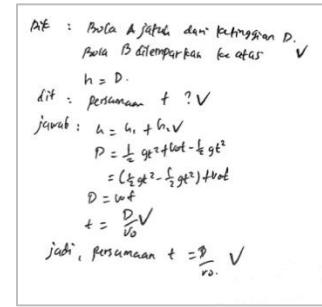 Dik : Bola A jatuh dari ketinggian D.
Bola B dilemparkan ke atas ✓
h = D.
dit : persamaan t ? ✓
jawab : h = h₁ + h₂ ✓
D = 1/2 gt² + vot - 1/2 gt²
= (1/2 gt² - 1/2 gt²) + vot
D = vot
t = D/vo ✓
jadi, persamaan t = D/vo. ✓